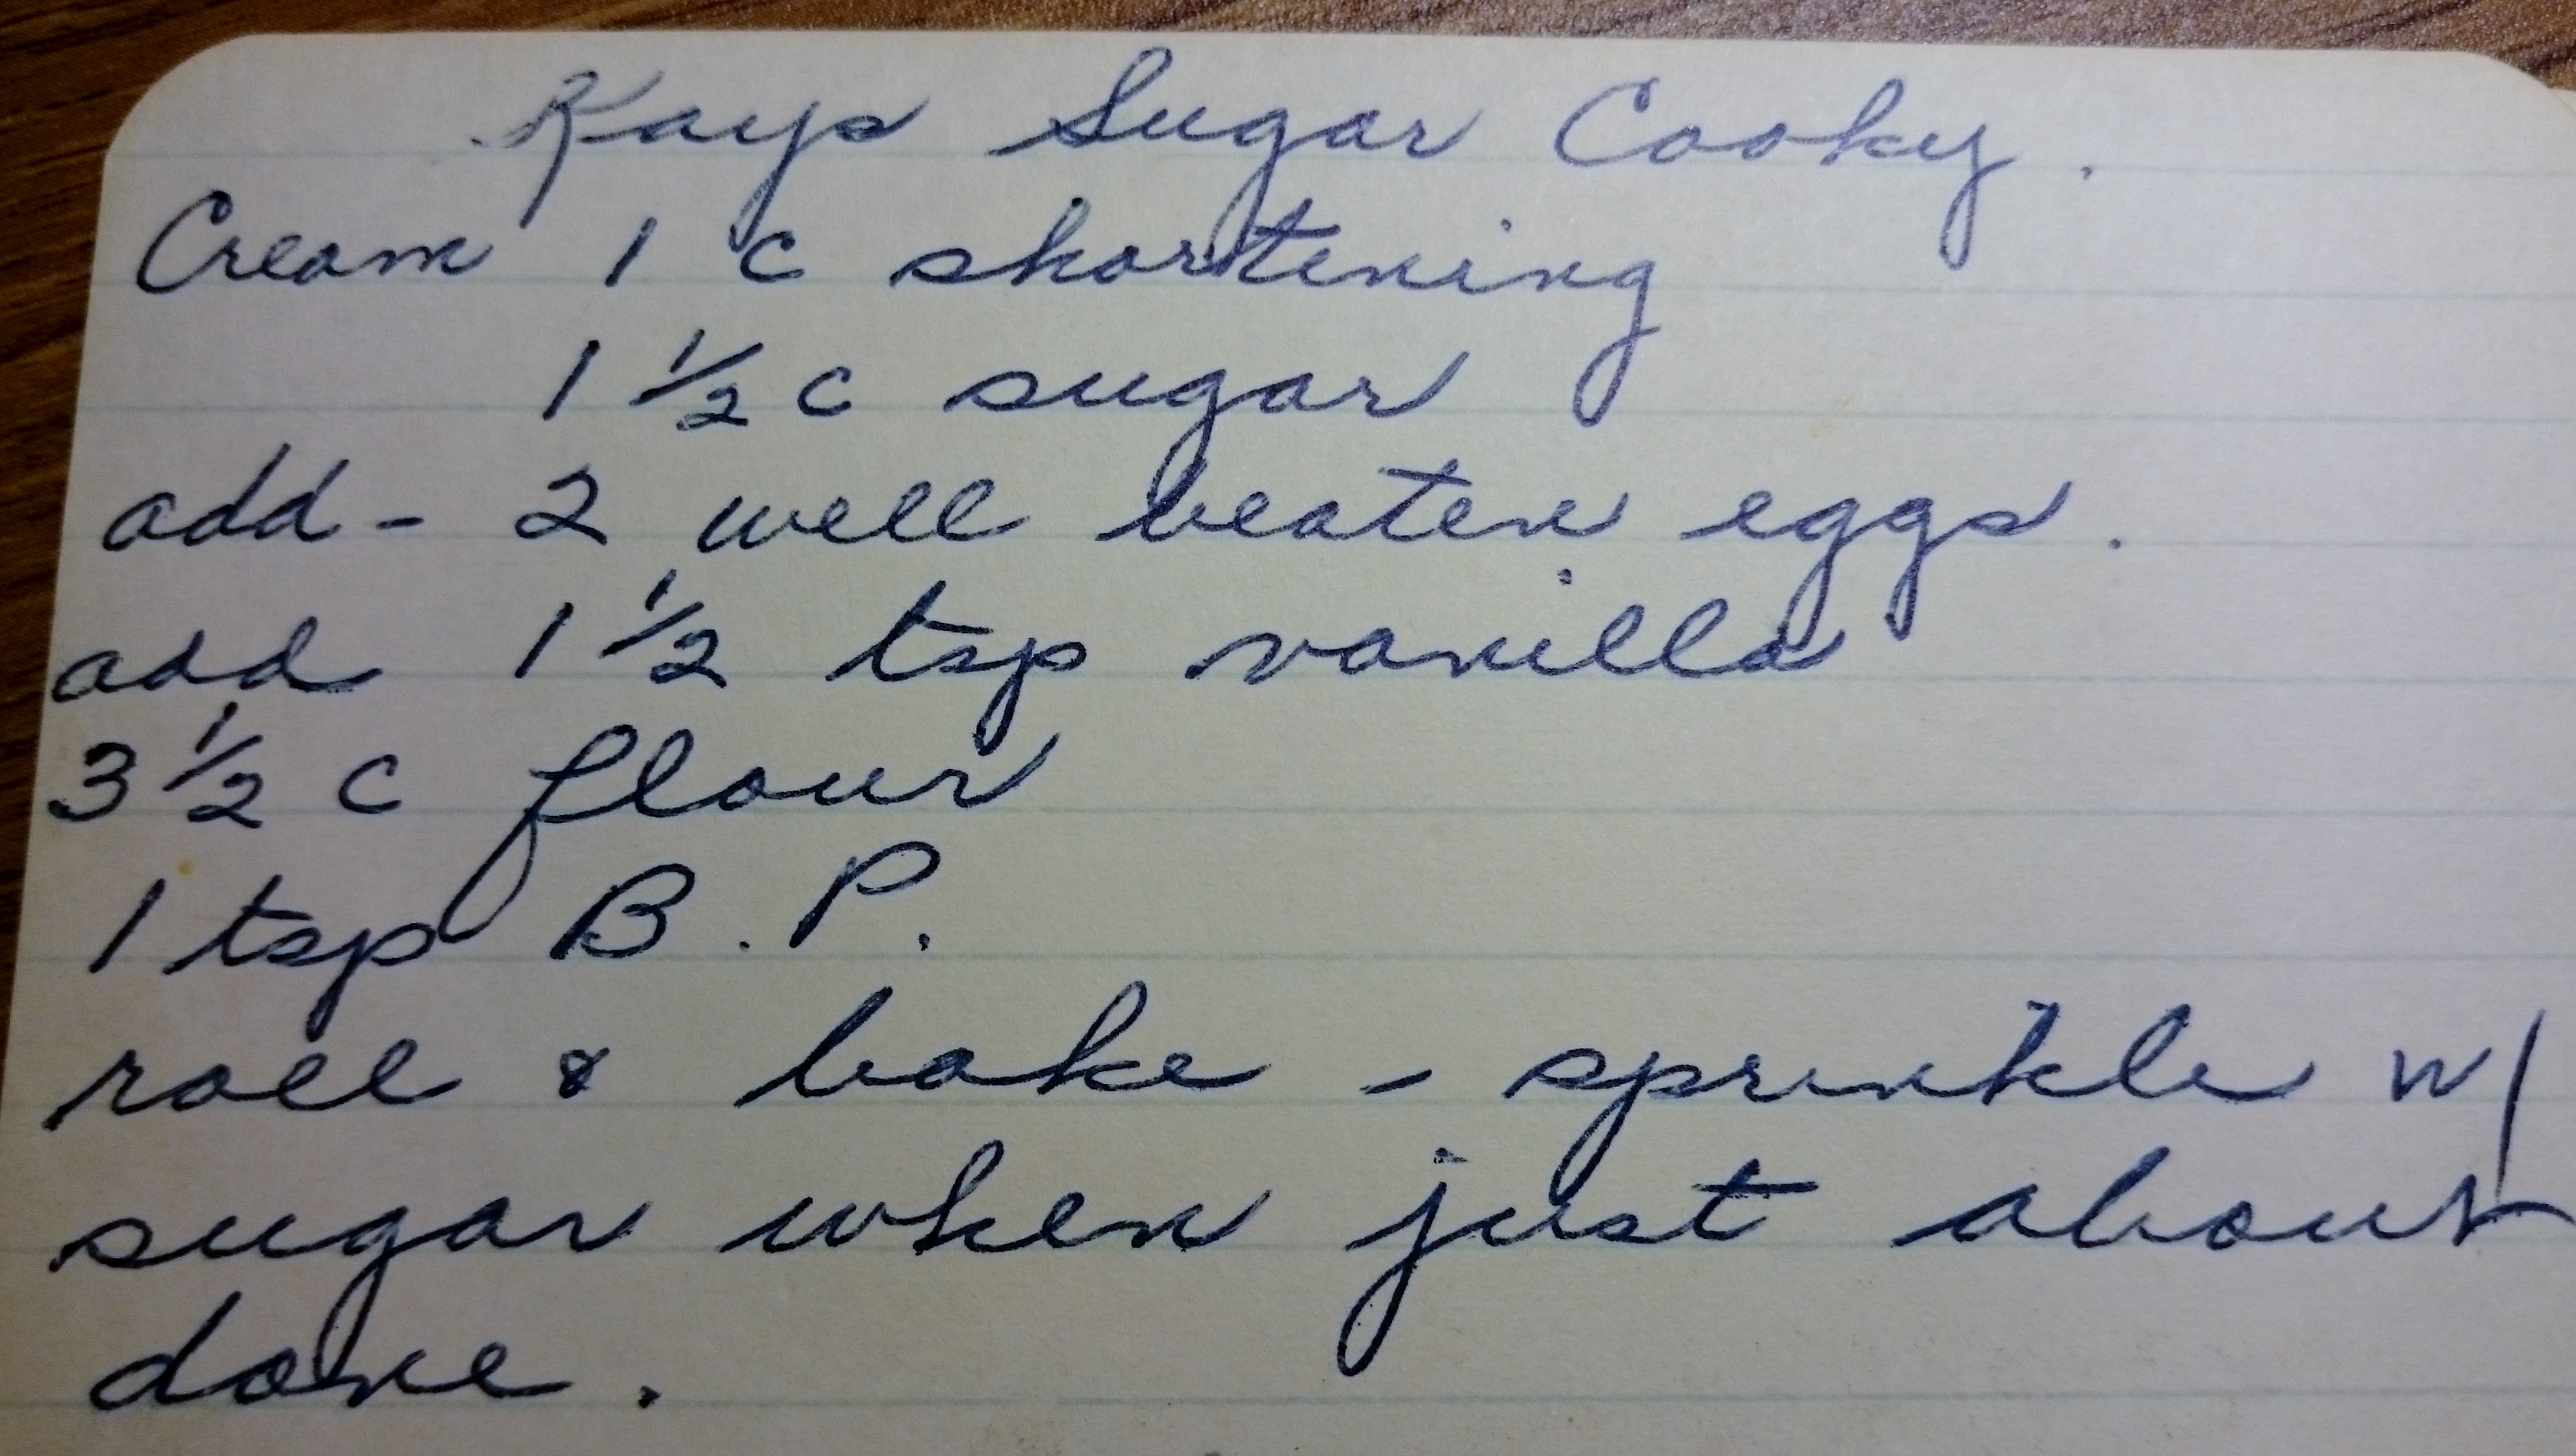 Kays Sugar Cooky.
Cream 1 c shortening
1 1/2 c sugar
add - 2 well beaten eggs.
add 1 1/2 tsp vanilla
3 1/2 c flour
1 tsp B.P.
roll & bake - sprinkle w/
sugar when just about
done.